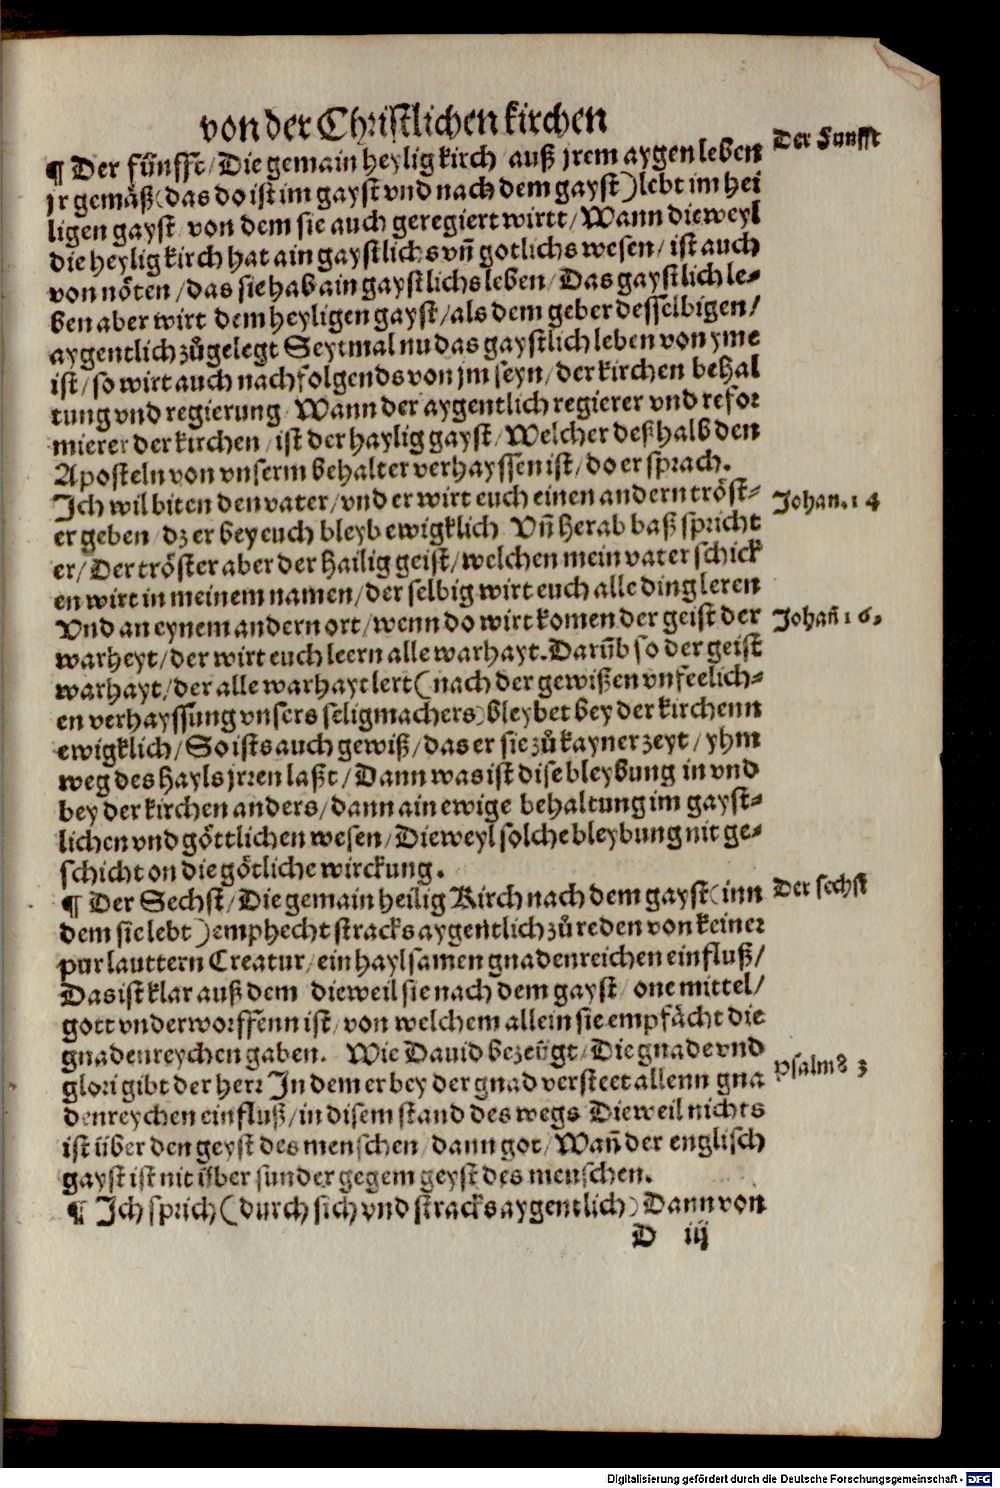 von der Christlichen kirchen
¶ Der fünfft/ Die gemain heylig kirch auß jrem aygen leben
Der Funfft
jr gemäß (das do ist im gayst vnd nach dem gayst) lebt im hei
ligen gayst/ von dem sie auch geregiert wirtt/ Wann dieweyl
die heylig kirch hat ain gaystlichs vñ gotlichs wesen/ ist auch
von nöten/ das sie hab ain gaystlichs leben/ Das gaystlich le-
ben aber wirt dem heyligen gayst/ als dem geber desselbigen/
aygentlich zůgelegt Seytmal nu das gaystlich leben von yme
ist/ so wirt auch nachfolgends von jm seyn/ der kirchen behal
tung vnd regierung/ Wann der aygentlich regierer vnd refor
mierer der kirchen/ ist der haylig gayst/ Welcher deßhalb den
Aposteln von vnserm behalter verhayssen ist/ do er sprach.
Ich wil biten den vater/ vnd er wirt euch einen andern tröst-
Johan. 14
er geben/ dz er bey euch bleyb ewigklich/ Vñ herab baß spricht
er/ Der tröster aber der hailig geist/ welchen mein vater schick
en wirt in meinem namen/ der selbig wirt euch alle ding leren
Vnd an eynem andern ort/ wenn do wirt komen der geist der
Johañ 16.
warheyt/ der wirt euch leern alle warhayt. Darũb so der geist
warhayt/ der alle warhayt lert (nach der gewißen vnfeelich-
en verhayssung vnsers seligmachers) bleybet bey der kirchenn
ewigklich/ So ists auch gewiß/ das er sie zů kayner zeyt/ yhm
weg des hayls jrren laßt/ Dann was ist dise bleybung in vnd
bey der kirchen anders/ dann ain ewige behaltung im gayst-
lichen vnd göttlichen wesen/ Dieweyl solche bleybung nit ge-
schicht on die götliche wirckung.
¶ Der Sechst/ Die gemain heilig Kirch nach dem gayst (inn
Der sechst
dem sie lebt) emphecht stracks aygentlich zů reden von keiner
pur lauttern Creatur/ ein haylsamen gnadenreichen einfluß/
Das ist klar auß dem/ dieweil sie nach dem gayst/ one mittel/
gott vnderworffenn ist/ von welchem allein sie empfächt die
gnadenreychen gaben. Wie Dauid bezeügt/ Die gnade vnd
glori gibt der herr In dem er bey der gnad versteet allenn gna
Psalm 83
denreychen einfluß/ in disem stand des wegs Dieweil nichts
ist über den geyst des menschen/ dann got/ Wañ der englisch
gayst ist nit über sunder gegem geyst des menschen.
¶ Ich sprich (durch sich vnd stracks aygentlich) Dann von
D iij
Digitalisierung gefördert durch die Deutsche Forschungsgemeinschaft - DFG